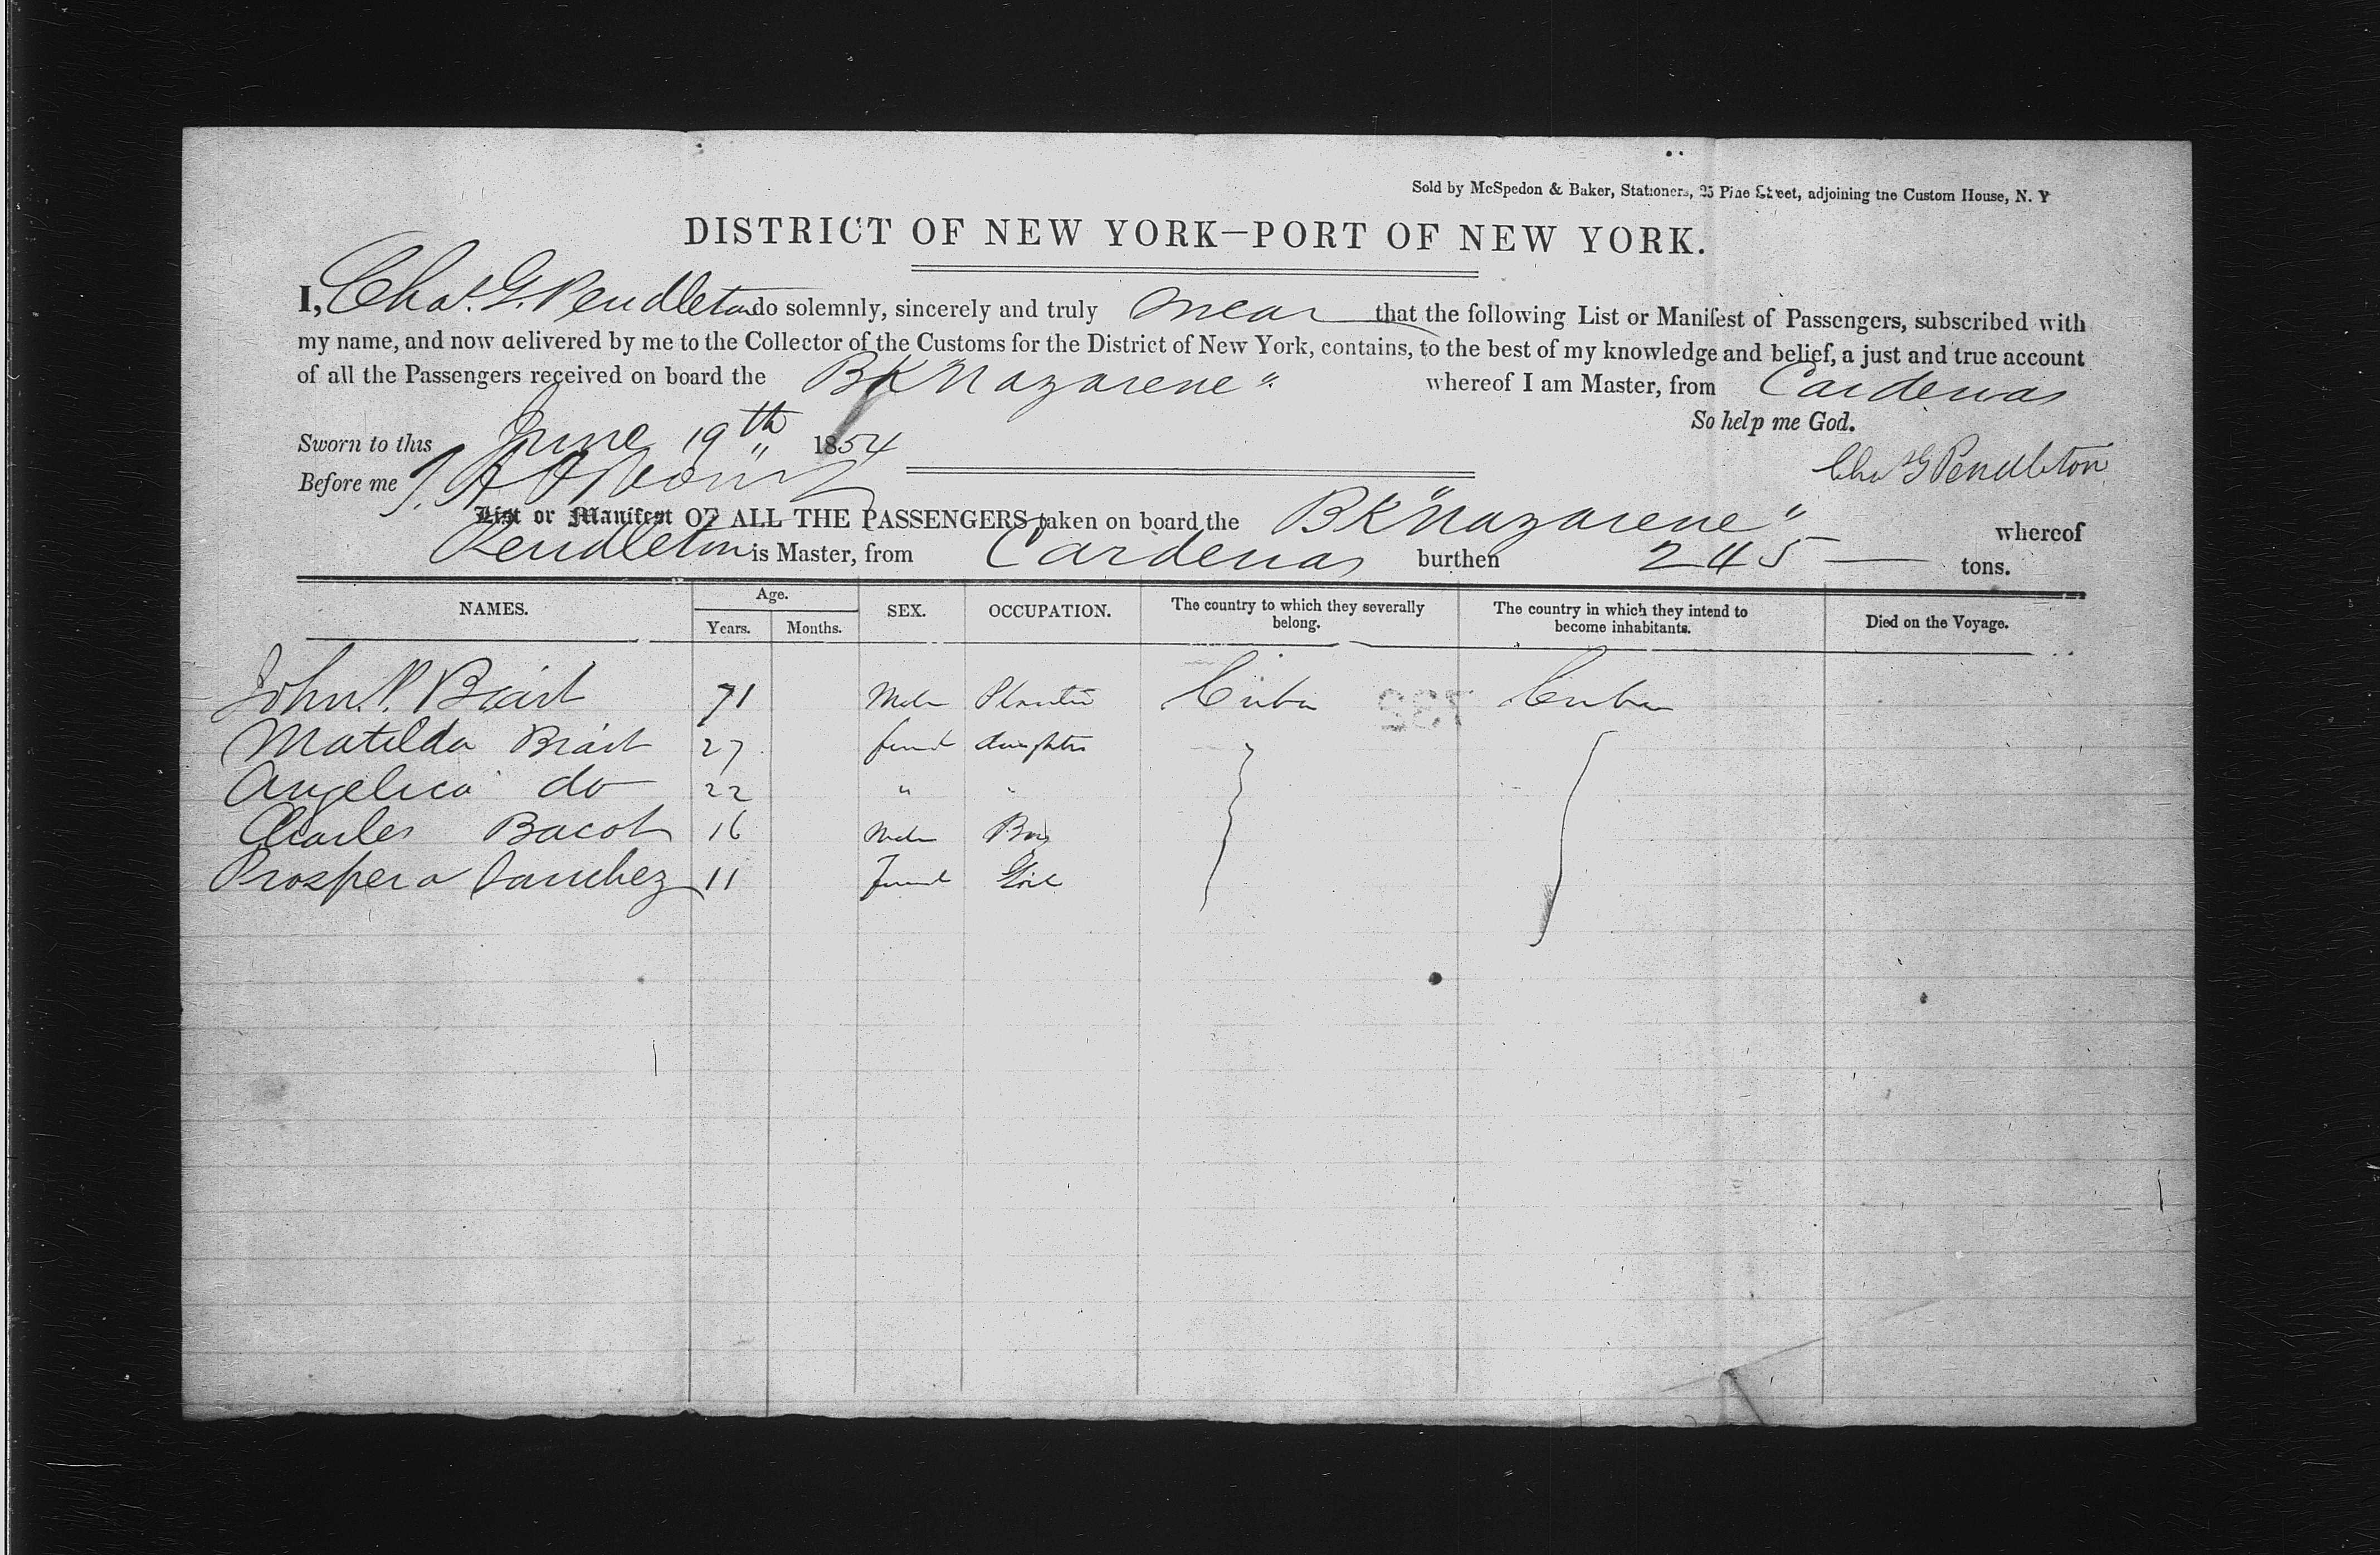 Sold by McSpedon & Baker, Stationers, 25 Pine Street, adjoining the Custom House, N. Y
DISTRICT OF NEW YORK—PORT OF NEW YORK.
I, Chas. G. Pendleton do solemnly, sincerely and truly swear that the following List or Manifest of Passengers, subscribed with
my name, and now delivered by me to the Collector of the Customs for the District of New York, contains, to the best of my knowledge and belief, a just and true account
of all the Passengers received on board the BK "Nazarene" whereof I am Master, from Cardenas
So help me God.
Sworn to this June 19th 1854
Chas G Pendleton
Before me
List or Manifest OF ALL THE PASSENGERS taken on board the BK "Nazarene" whereof
Pendleton is Master, from Cardenas burthen 245 — tons.
NAMES. Age. Years. Months. SEX. OCCUPATION. The country to which they severally belong. The country in which they intend to become inhabitants. Died on the Voyage.
John P. 71 Male Planter Cuba Cuba
Matilda 27 female daughter
Angelica do 22 " "
Charles Bacot 16 Male Boy
Prospera Sanchez 11 Female Girl